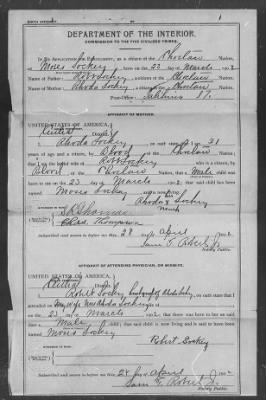 DEPARTMENT OF THE INTERIOR.
COMMISSION TO THE FIVE CIVILIZED TRIBES.
In Re Application for Enrollment, as a citizen of the Choctaw Nation,
of Moses Sockey, born on the 23 day of March, 1902
Name of Father: Robt Sockey, a citizen of the Choctaw Nation.
Name of Mother: Rhoda Sockey, a citizen of the Choctaw Nation.
Post-Office
AFFIDAVIT OF MOTHER.
UNITED STATES OF AMERICA,
District.
I, Rhoda Sockey, on oath state that I am 31
years of age and a citizen, by Blood, of the Choctaw Nation;
that I am the lawful wife of Robt Sockey, who is a citizen, by
Blood, of the Choctaw Nation; that a Male child was
born to me on the 23 day of March, 1902; that said child has been
named Moses Sockey, and is now living.
Rhoda Sockey
mark
Subscribed and sworn to before me this 28 day of April, 1902
Notary Public.
AFFIDAVIT OF ATTENDING PHYSICIAN, OR MIDWIFE.
UNITED STATES OF AMERICA,
District.
I, Robert Sockey, on oath state that I
attended on my wife Mrs Rhoda Sockey
on the 23 day of March, 1902; that there was born to her on said
date a Male child; that said child is now living and is said to have been
named Moses Sockey
Robert Sockey
Subscribed and sworn to before me this 28 day of April, 1902
Notary Public.